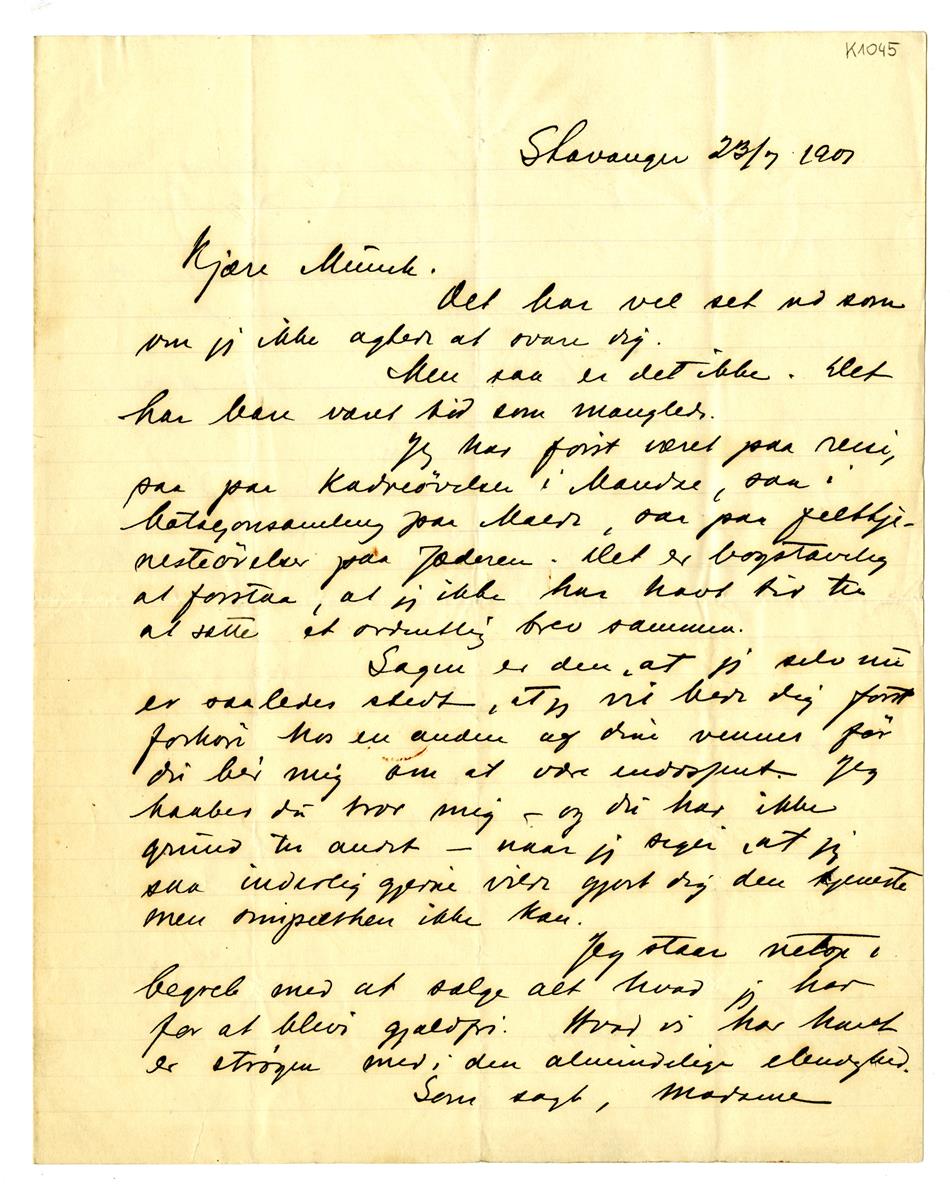 K1045
Stavanger 23/7 1901
Kjære Munch.
Det har vel set ud som
om jeg ikke agtede at svare dig.
Men saa er det ikke. Det
har bare været tid som manglede.
Jeg har først været paa reise,
saa paa Kadreøvelse i Mandal, saa i
bataljonsamling paa Malde, saa paa felttje-
nesteøvelser paa Jæderen. Det er bogstavelig
at forstaa, at jeg ikke har havt tid til
at sætte et ordentlig brev sammen.
Sagen er den, at jeg selv nu
er saaledes stedt, at jeg vil bede dig først
forhøre hos en anden af dine venner før
du ber mig om at være endossent. Jeg
haaber du tror mig – og du har ikke
grund til andet – naar jeg siger, at jeg
saa inderlig gjerne vilde gjort dig den tjeneste
men simpelthen ikke kan.
Jeg staar netop i
begreb med at sælge alt hvad jeg har
for at blive gjældfri. Hvad vi har havt
er strøgen med i den almindelige elendighed.
Som sagt,